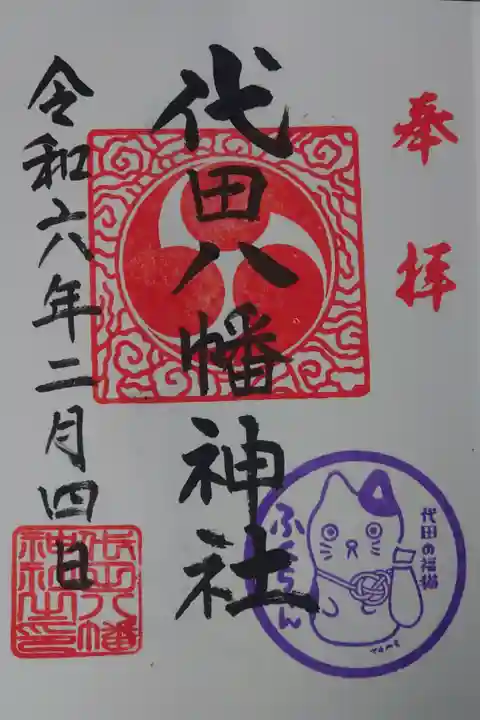 奉拝
代田八幡神社
令和六年二月四日
代田八幡神社之印
代田の福猫
ふくちん